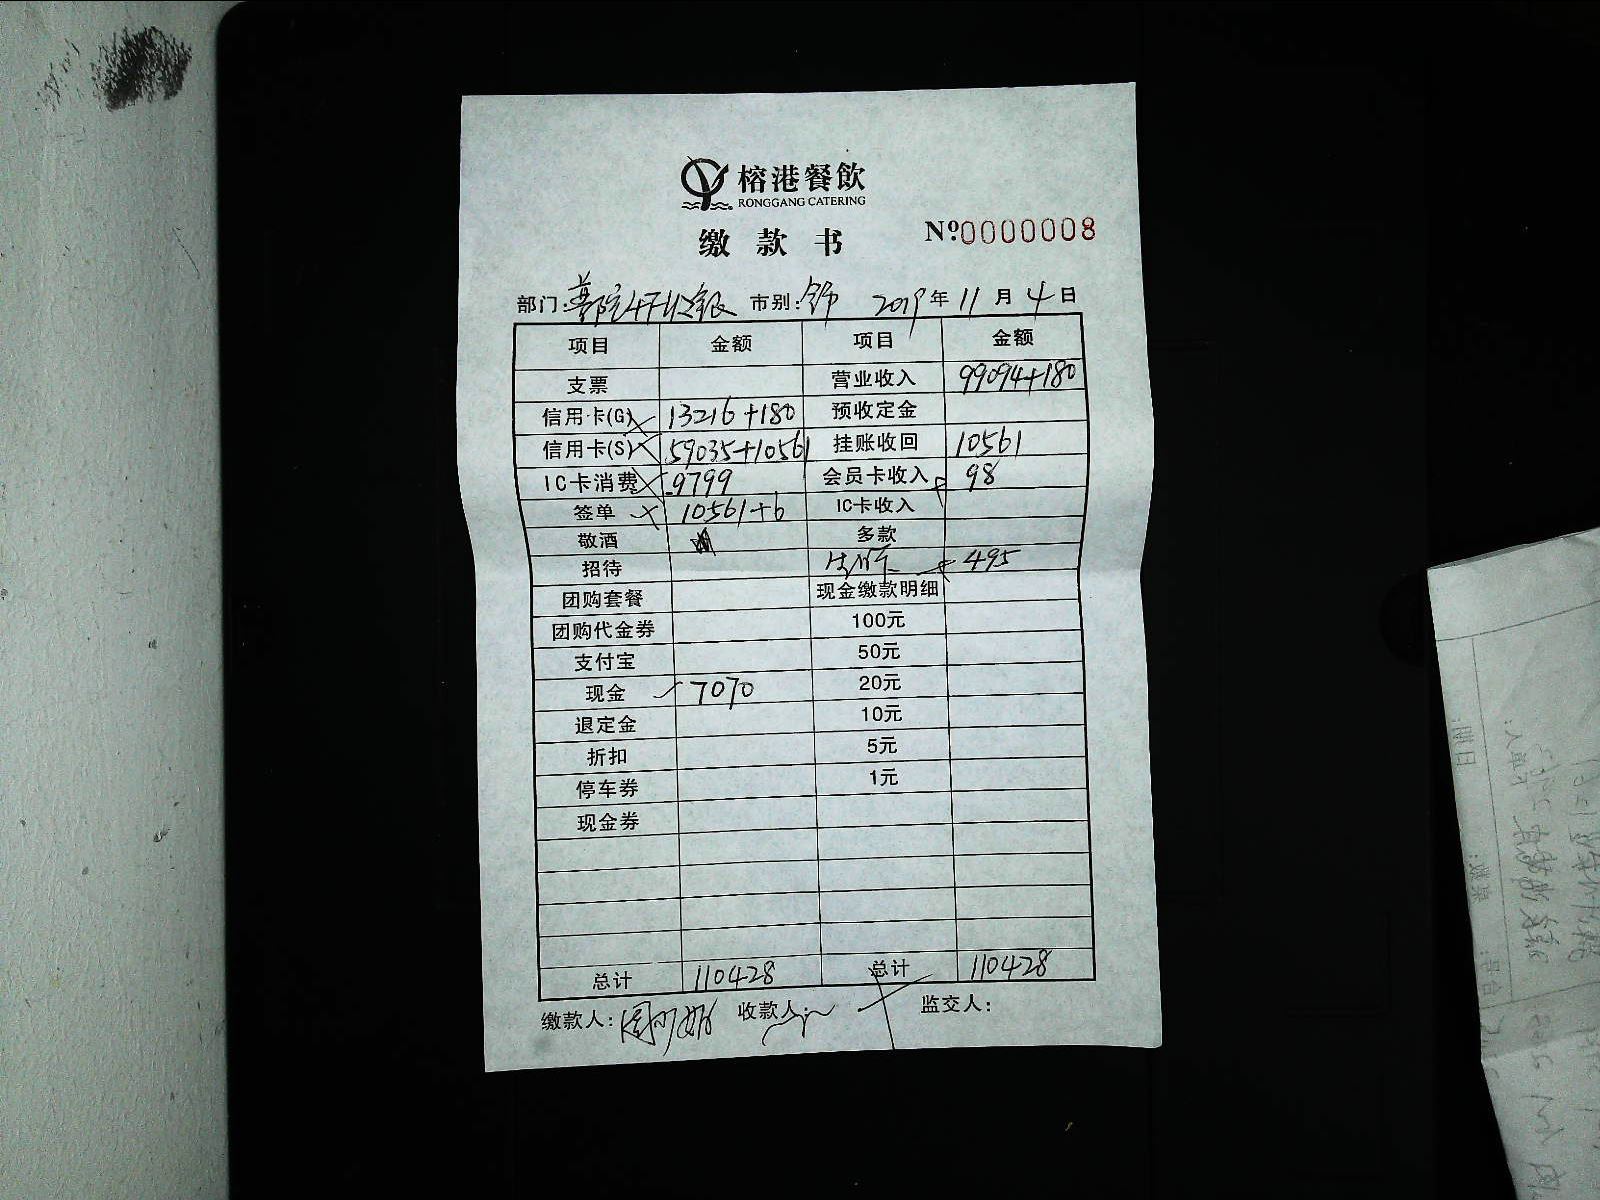 榕港餐飲
RONGGANG CATERING
缴款书 Nº:0000008
部门: 市别: 2019年11月4日
项目 金额 项目 金额
支票 营业收入 99094+180
信用卡(G) 13216+180 预收定金
信用卡(S) 59035+10561 挂账收回 10561
IC卡消费 9799 会员卡收入 98
签单 10561+6 IC卡收入
敬酒 多款
招待 495
团购套餐 现金缴款明细
团购代金券 100元
支付宝 50元
现金 7070 20元
退定金 10元
折扣 5元
停车券 1元
现金券
总计 110428 总计 110428
缴款人: 收款人: 监交人: